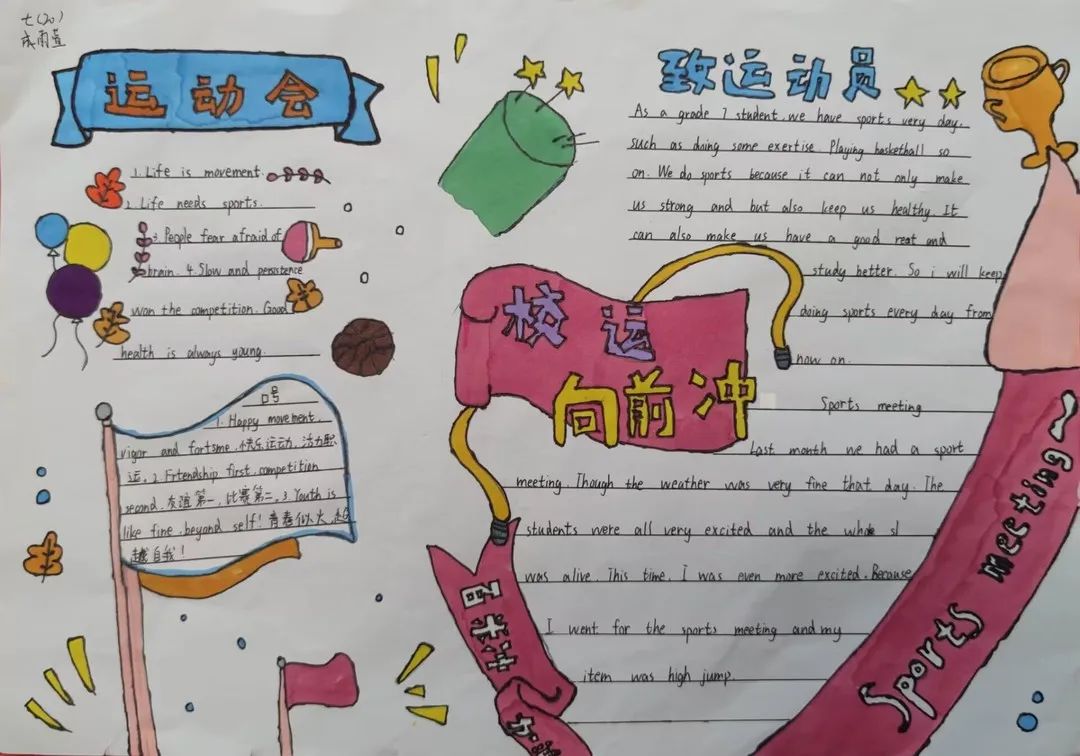 七(20)
成雨萱
运动会
1. Life is movement.
2. Life needs sports.
3. People fear afraid of
brain. 4. Slow and persistence
won the competition. Good
health is always young.
口号
1. Happy movement,
vigor and fortsme. 快乐运动, 活力熙
运。2. Friendship first, competition
second. 友谊第一, 比赛第二。3. Youth is
like fine, beyond self! 青春似火, 超
越自我!
致运动员
As a grade 7 student, we have sports very day,
such as doing some exertise. Playing basketball so
on. We do sports because it can not only make
us strong and but also keep us healthy. It
can also make us have a good reat and
study better. So i will keep
doing sports every day from
now on.
校运
向前冲
Sports meeting
Last month we had a sport
meeting. Though the weather was very fine that day. The
students were all very excited and the whole sl
was alive. This time, I was even more excited. Because
I went for the sports meeting and my
item was high jump.
百米冲
Sports meeting